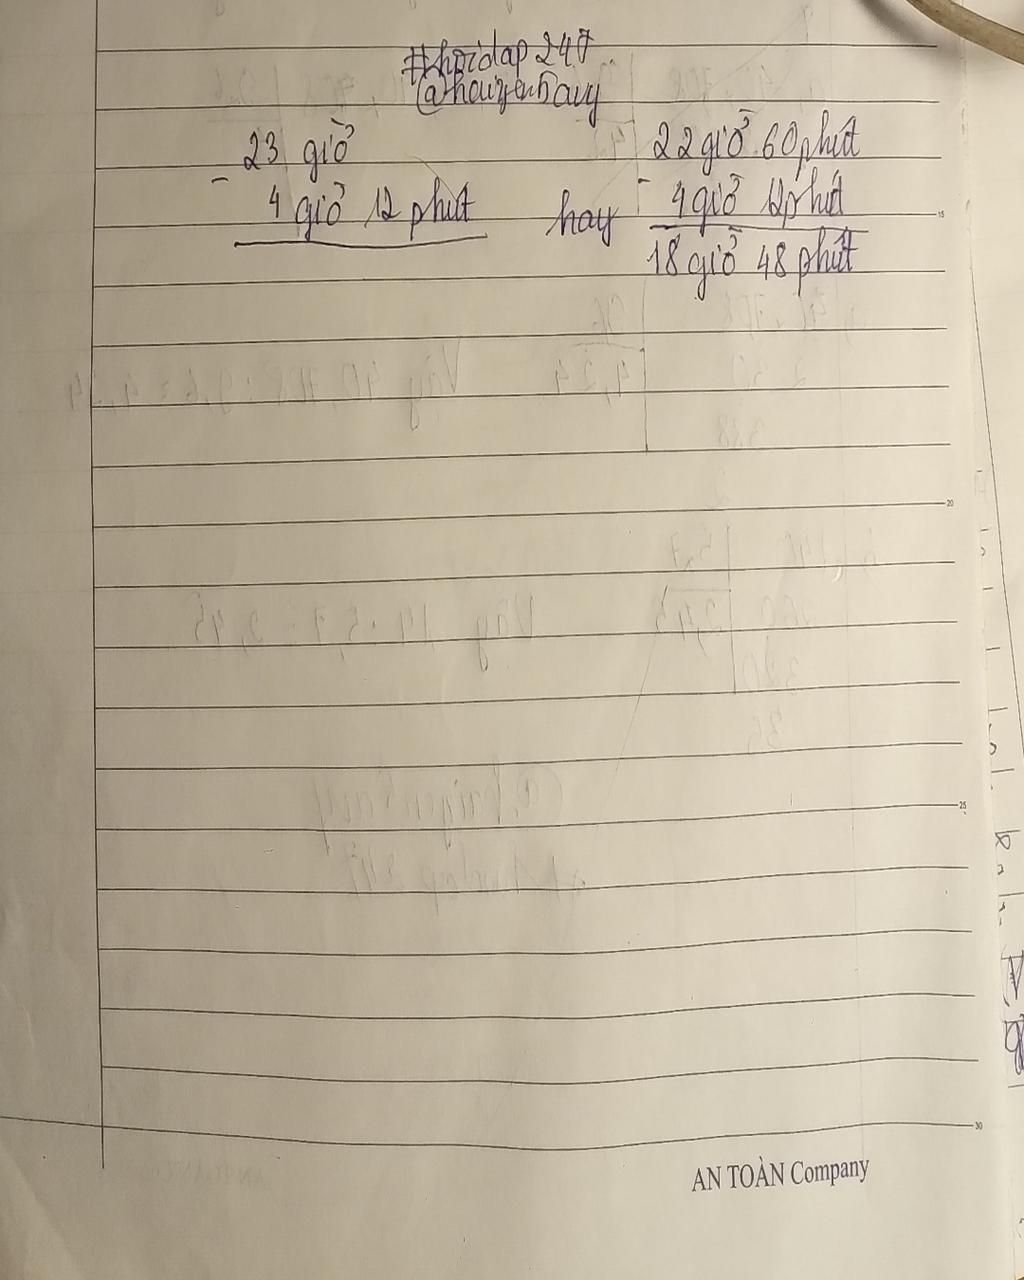 #hoidap247
@haiyen5auy
23 giờ
- 4 giờ 12 phút
hay
22 giờ 60 phút
- 4 giờ 12 phút
18 giờ 48 phút
15
20
25
30
AN TOÀN Company